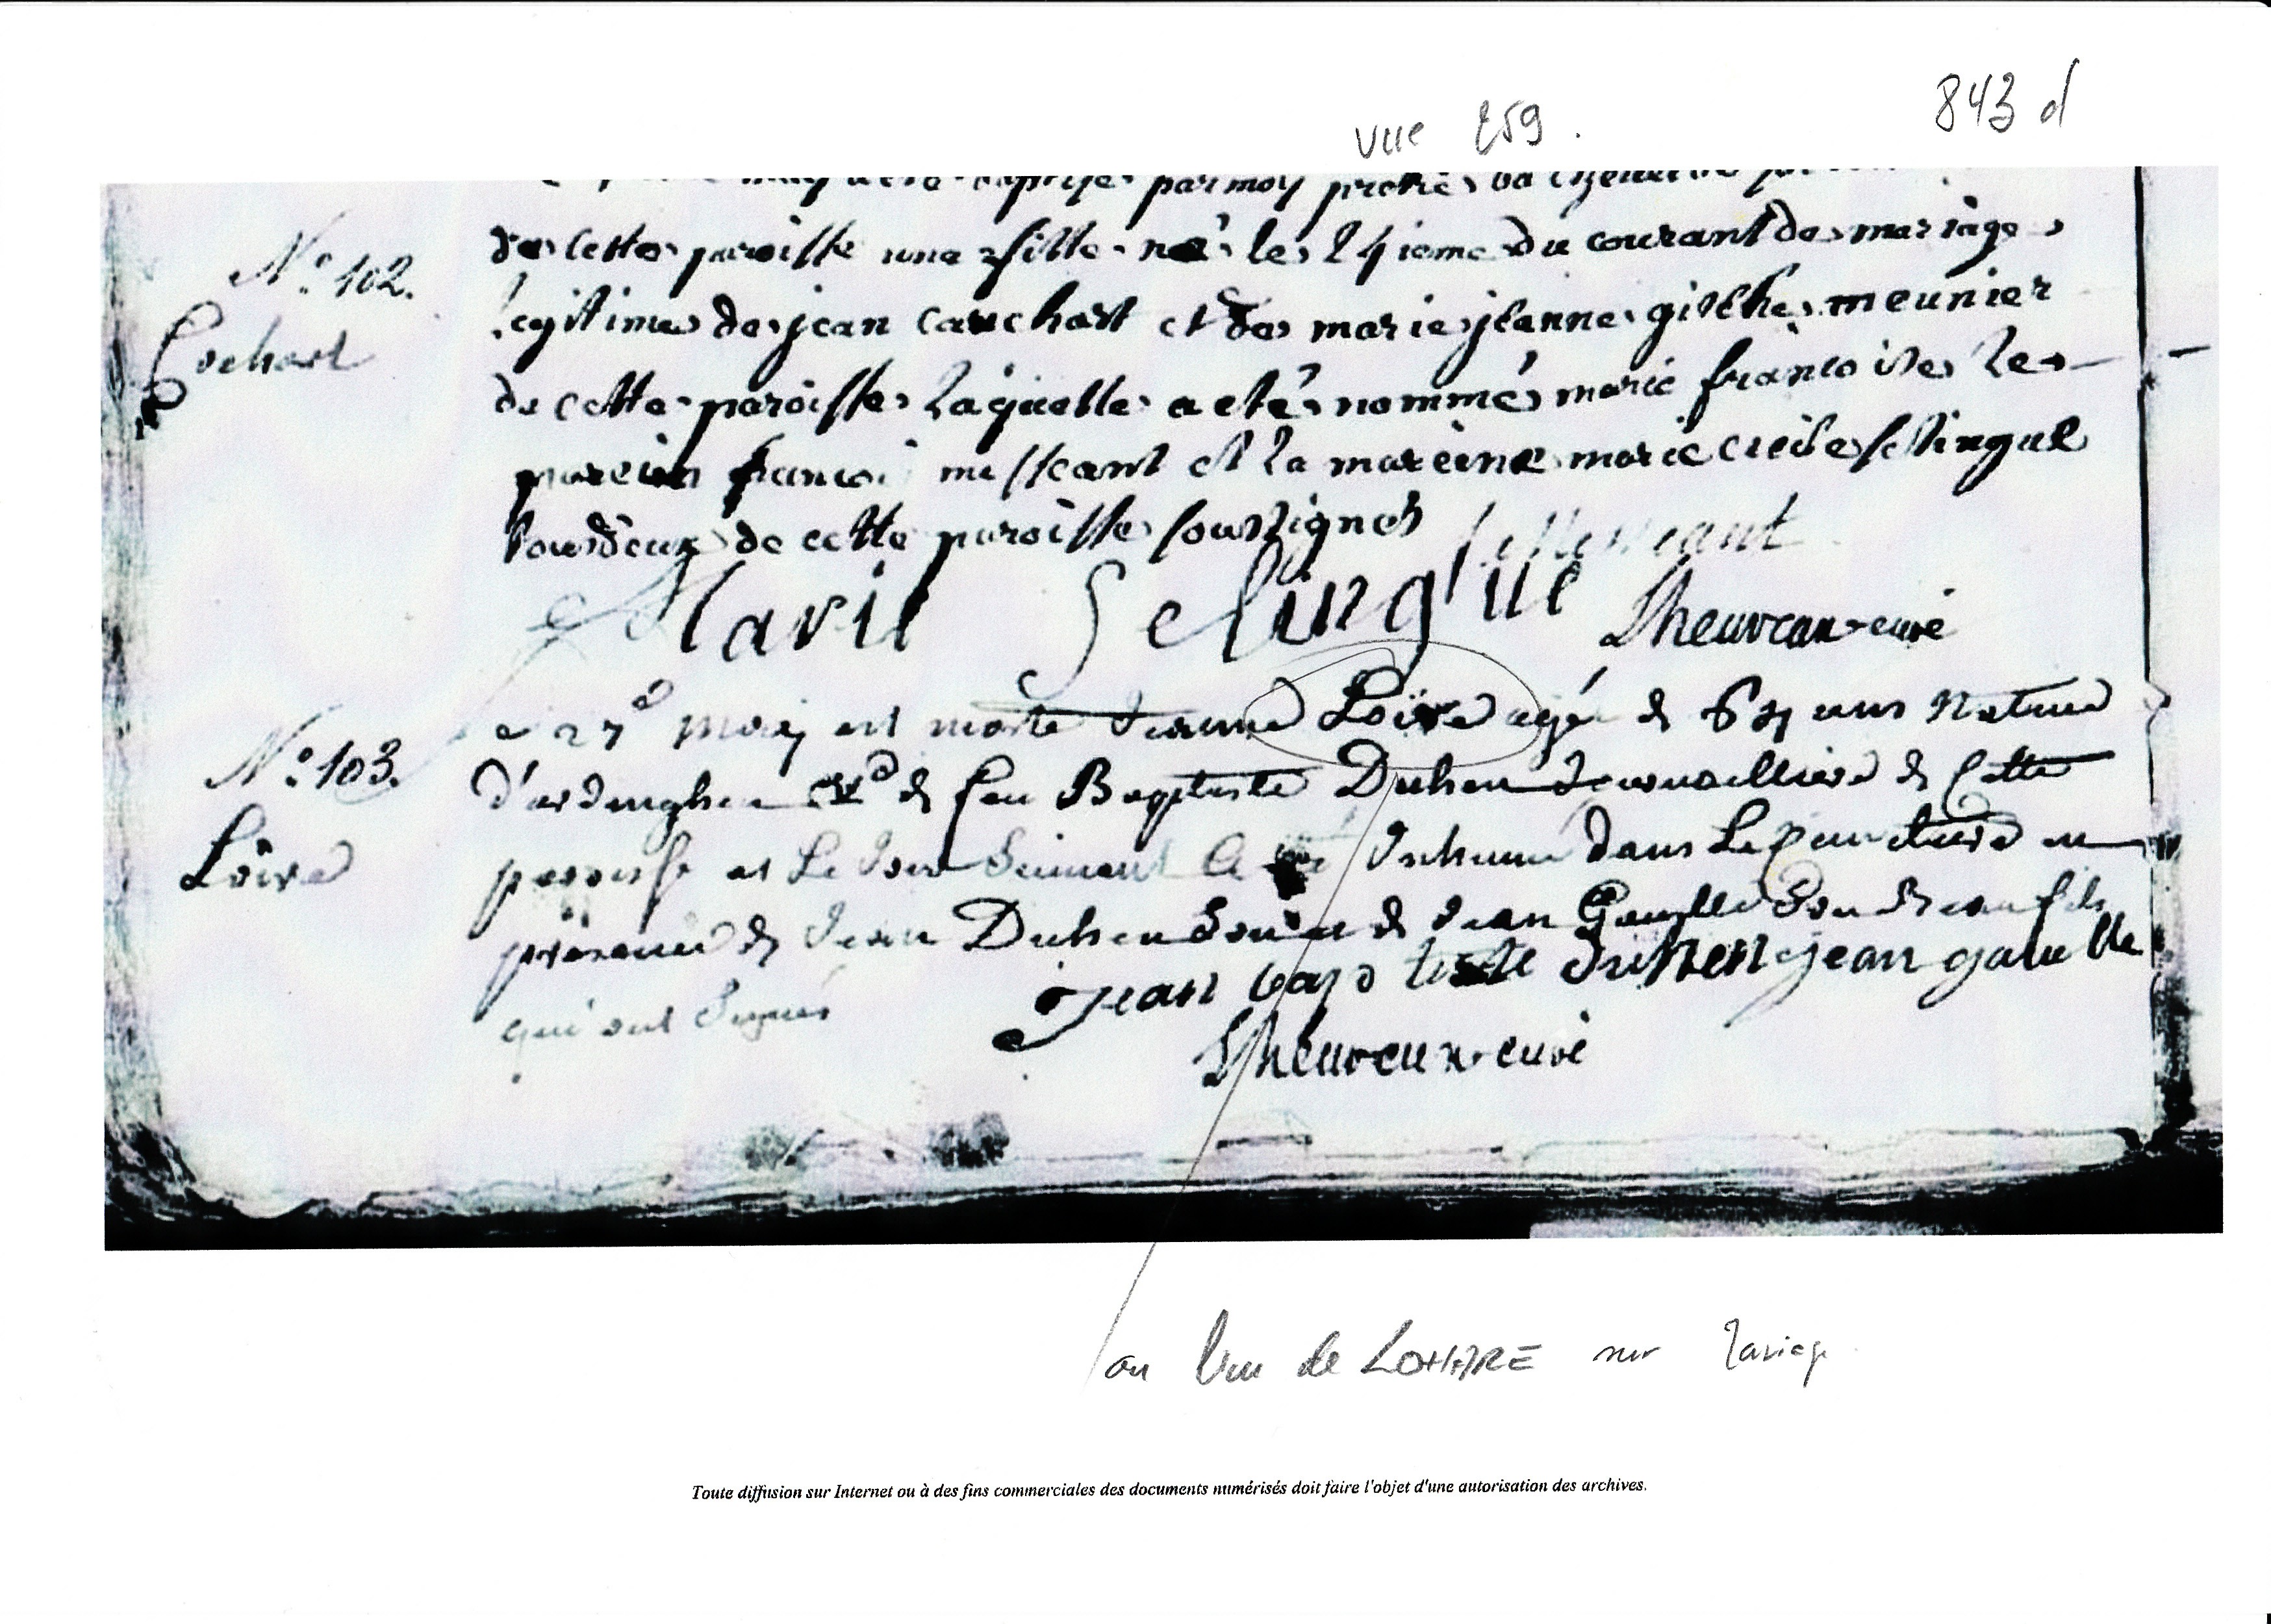 vue 259.
843 d
may a été baptisé par moy pretre
de cette paroisse une fille née le 24ieme du courant de mariage
N° 102.
legitime de jean cauchart et de marie jeanne meunier
Cochart
de cette paroisse laquelle a eté nommé marie francoise le
parein francoi messeant et la mareine marie cecile selingue
tous deux de cette paroisse soussignes
messeant
Marie Selingue Lheureux curé
Le 27e May est morte Jeanne Loire agé de 64 ans Native
N° 103.
d'ardinghen de feu Baptiste Duhen Journailliere de Cette
Loire
paroisse et Le Jour Suivant a été Inhumé dans Le Cimetiere en
presence de Jean Duhen Son fils et de Jean Gamble Son Beau fils
qui ont Signés
jean baptiste duhen jean gamble
Lheureux curé
au lieu de LOHIARE sur
Toute diffusion sur Internet ou à des fins commerciales des documents numérisés doit faire l'objet d'une autorisation des archives.